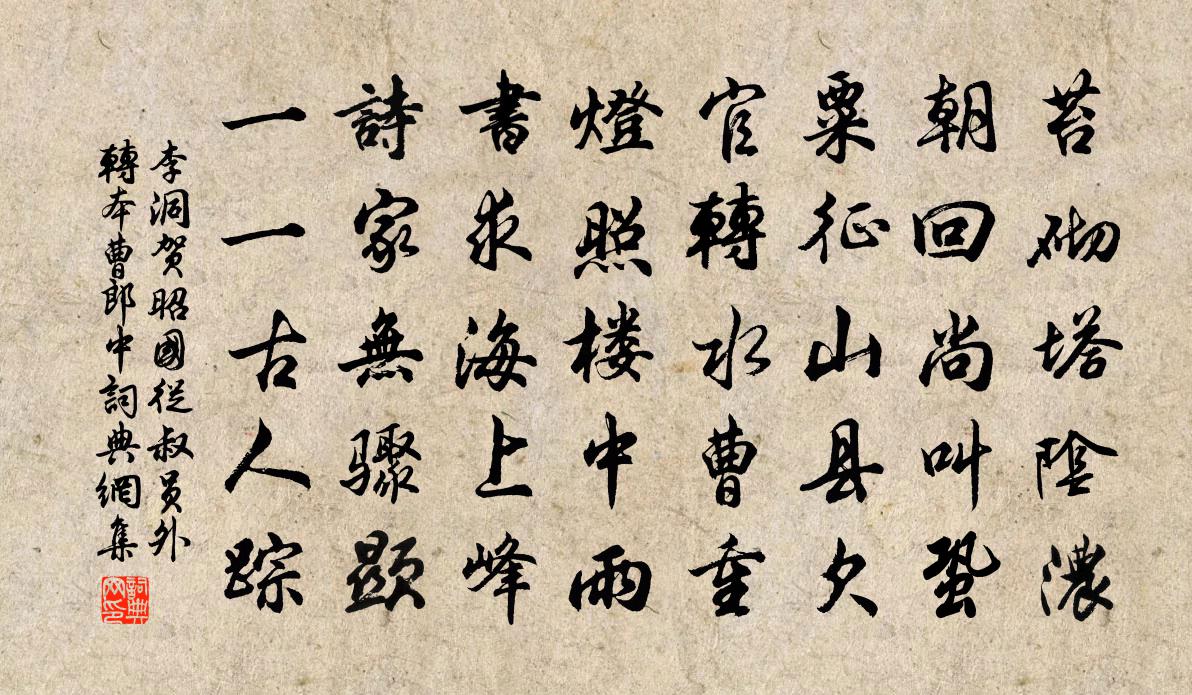 苔砌塔陰濃
朝回尚叫蛩
粟征山县欠
官轉水曹重
燈照楼中雨
書求海上峰
詩家無驟顯
一一古人踪
李洞贺昭國從叔员外
轉本曹郎中詞典網集
詞典
网印